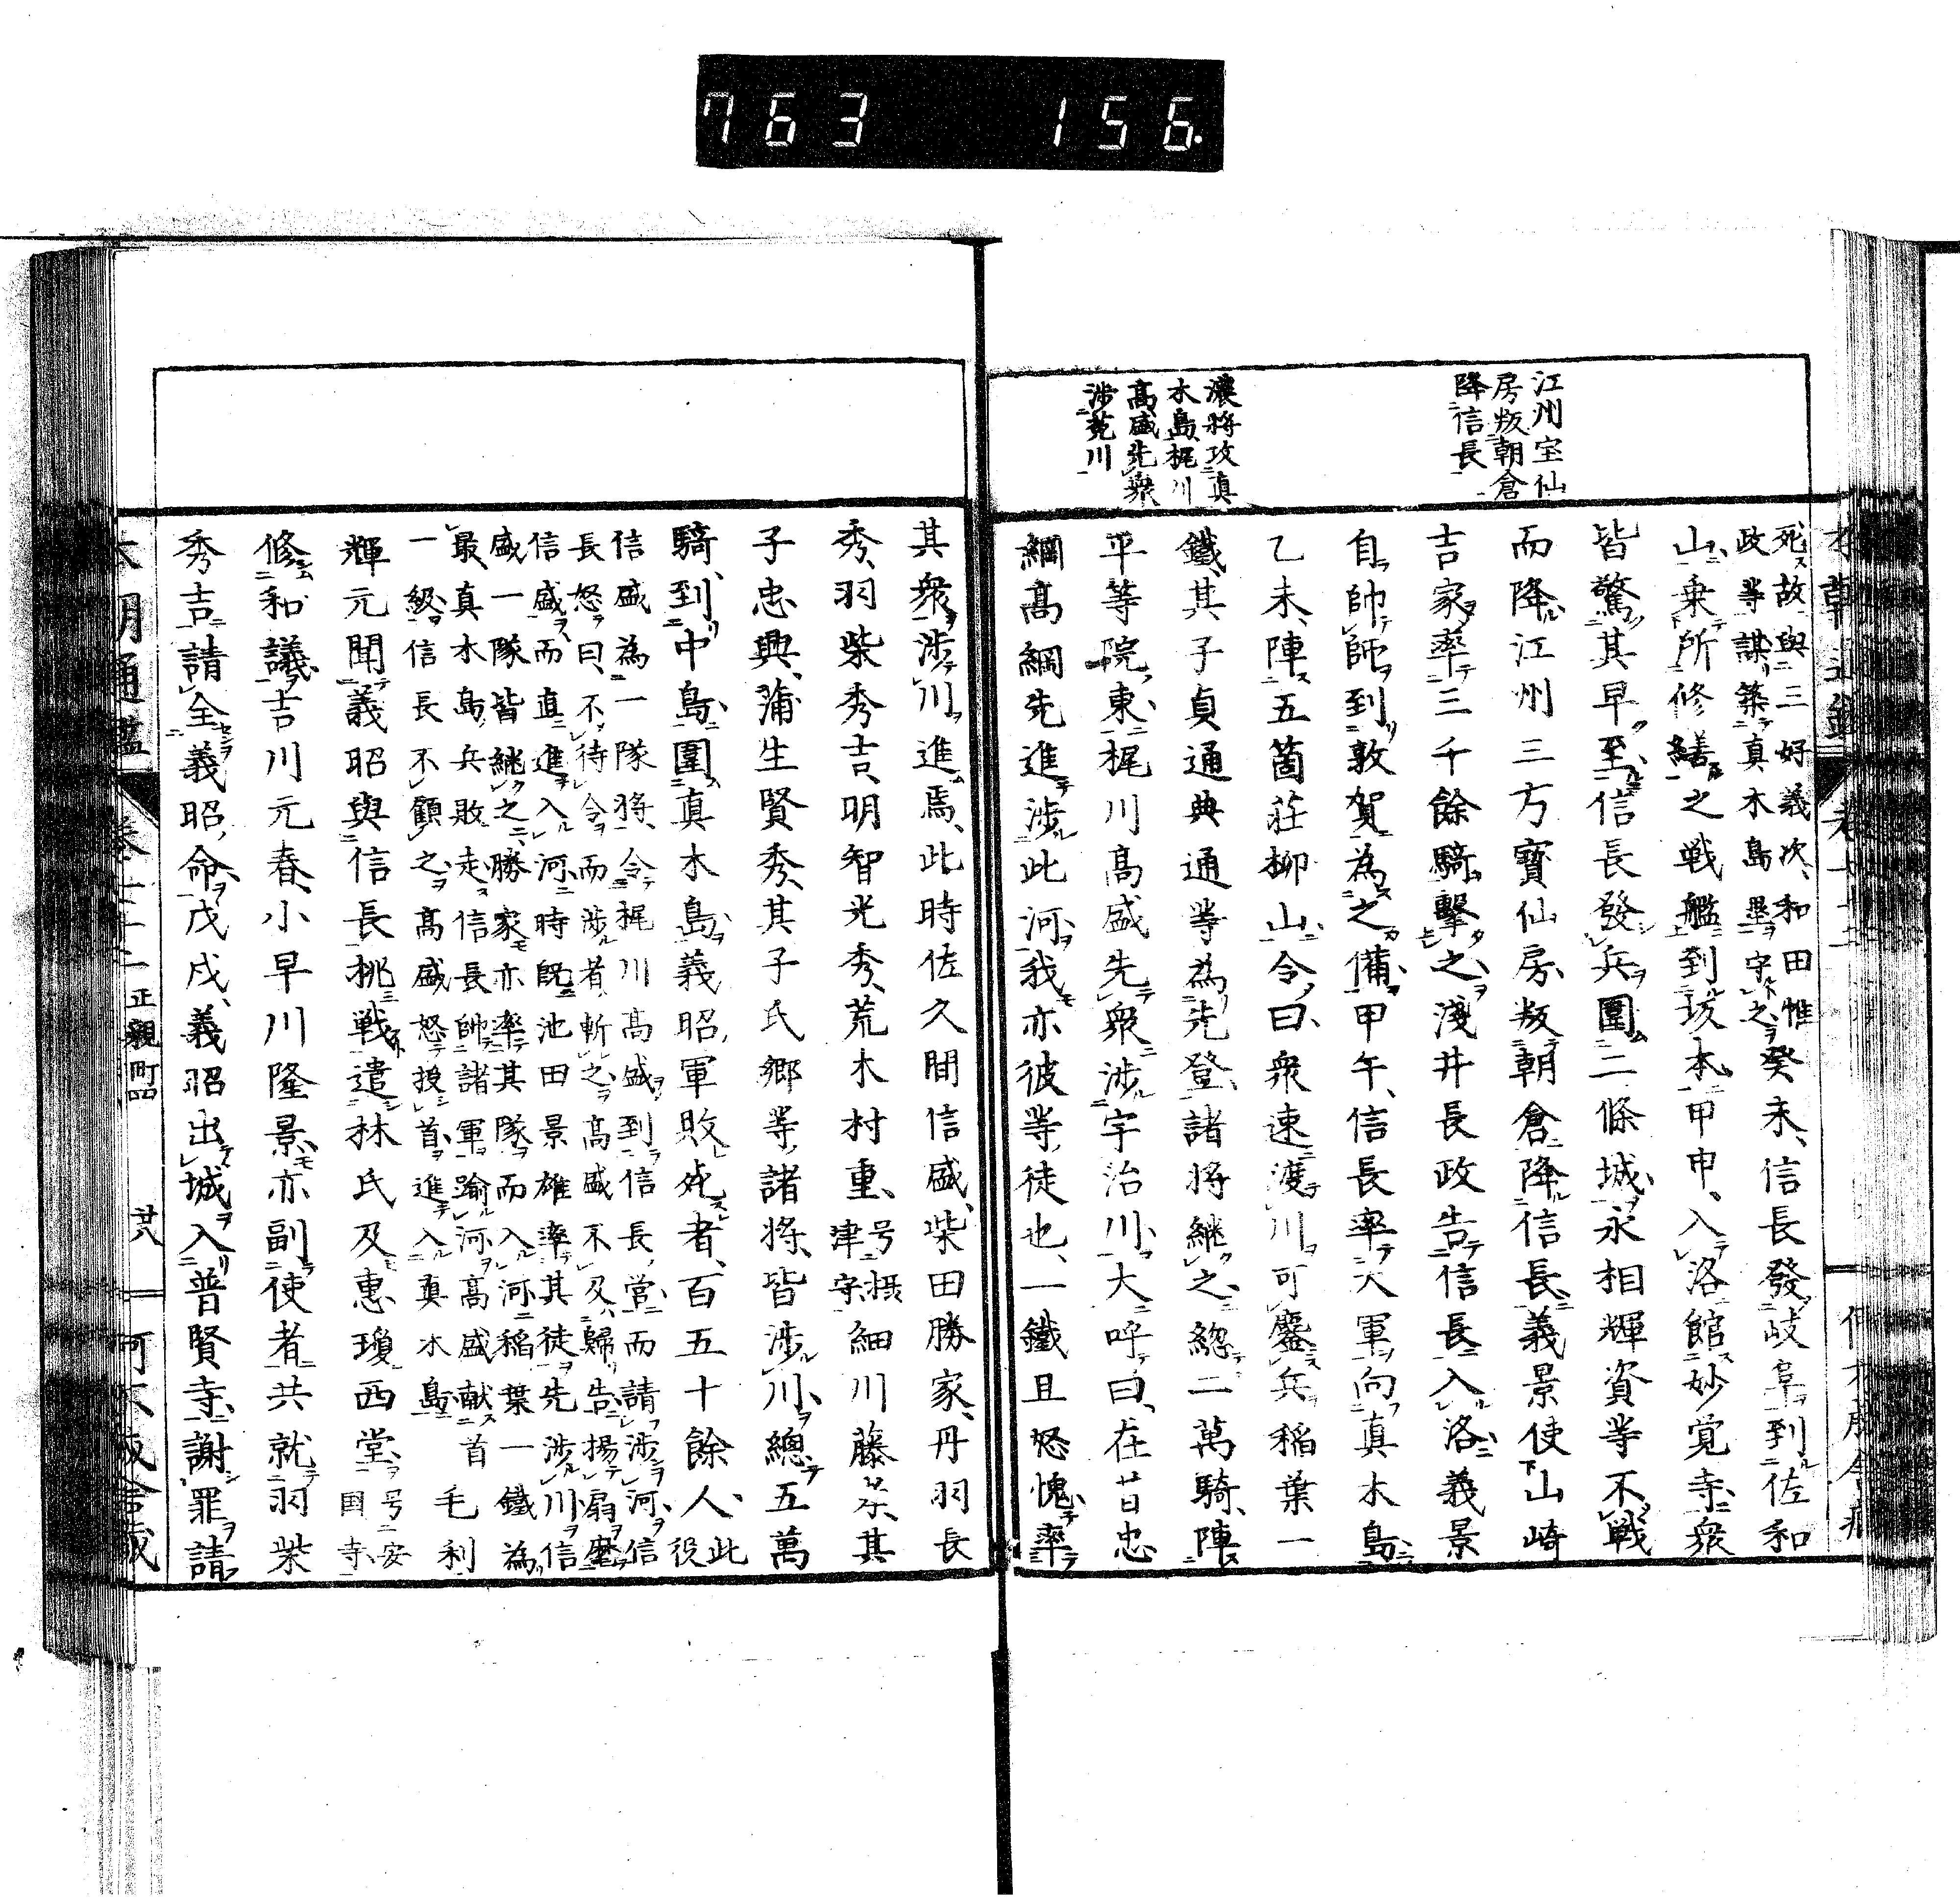 763 156.
江州宝仙
房叛朝倉
降信長
濃将攻真
木島梶川
高盛先衆
渉菟川
死故與三好義次、和田惟
政等謀築真木島壘守之
癸未、信長發岐阜到佐和
山乗所修繕之戦艦到坂本甲申、入洛館妙覚寺衆
皆驚其早至信長發兵圍二條城、永相輝資等不戦
而降江州三方寶仙房叛朝倉降信長義景使山崎
吉家率三千餘騎撃之淺井長政告信長入洛義景
自帥師到敦賀為之備甲午、信長率大軍向真木島
乙未、陣五箇荘柳山令曰、衆速渡川可鏖兵稲葉一
鐵、其子貞通典通等為先登、諸将継之総二萬騎、陣
平等院東梶川高盛先衆渉宇治川大呼曰、在昔忠
綱高綱先進渉此河我亦彼等、徒也、一鐵且怒愧率
其衆渉川進焉、此時佐久間信盛、柴田勝家、丹羽長
秀、羽柴秀吉、明智光秀、荒木村重、
号摂
津守
細川藤孝其
子忠興、蒲生賢秀、其子氏郷等、諸将、皆渉川總五萬
騎、到中島圍真木島義昭軍敗死者、百五十餘人、
此
役
信盛為一隊将、令梶川高盛到信長、営而請渉河信
長怒曰、不待令而渉者、斬之高盛不及歸告揚扇麾
信盛而直進入河時既池田景雄率其徒先渉川信
盛一隊皆継之勝家亦率其隊而入河稲葉一鐵為
最、真木島兵敗走信長帥諸軍踰河高盛献首
一級信長不顧之高盛怒投首進入真木島
毛利
輝元聞義昭與信長挑戦遣林氏及惠瓊西堂
号安
国寺
修和議吉川元春、小早川隆景亦副使者共就羽柴
秀吉請全義昭命戊戌、義昭出城入普賢寺謝罪請
正親町四
廿八